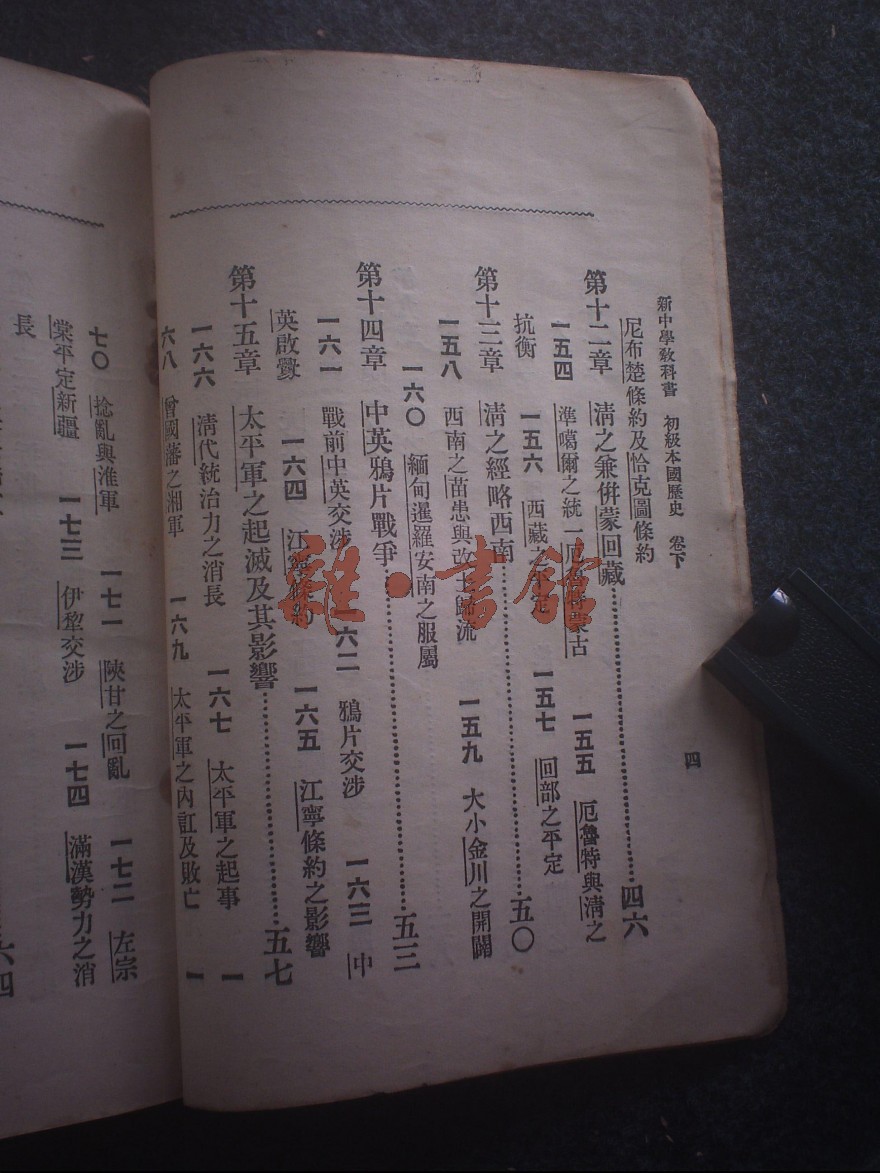 新中學教科書　初級本國歷史　卷下
四
尼布楚條約及恰克圖條約
第十二章　清之兼併蒙回藏……四六
一五四　準噶爾之統一厄魯特蒙古　一五五　厄魯特與清之
抗衡　一五六　西藏之平定　一五七　回部之平定
第十三章　清之經略西南……五〇
一五八　西南之苗患與改土歸流　一五九　大小金川之開闢
一六〇　緬甸暹羅安南之服屬
第十四章　中英鴉片戰爭……五三
一六一　戰前中英交涉　一六二　鴉片交涉　一六三　中
英啟釁　一六四　江寧條約　一六五　江寧條約之影響
第十五章　太平軍之起滅及其影響……五七
一六六　清代統治力之消長　一六七　太平軍之起事　一
六八　曾國藩之湘軍　一六九　太平軍之內訌及敗亡　一
七〇　捻亂與淮軍　一七一　陝甘之回亂　一七二　左宗
棠平定新疆　一七三　伊犂交涉　一七四　滿漢勢力之消
長
六四
雜·書館